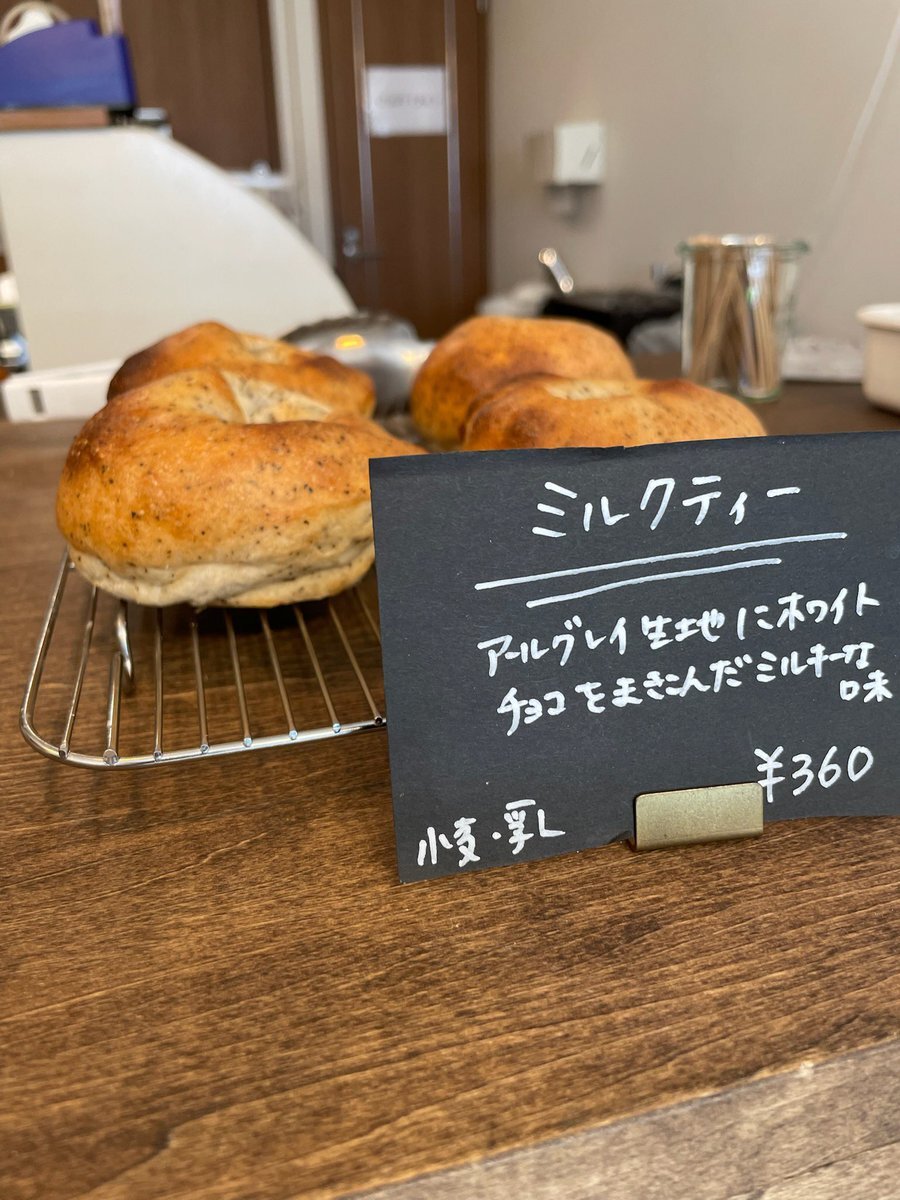 ミルクティー
アールグレイ生地にホワイト
チョコをまきこんだミルキーな
味
¥360
小麦・乳